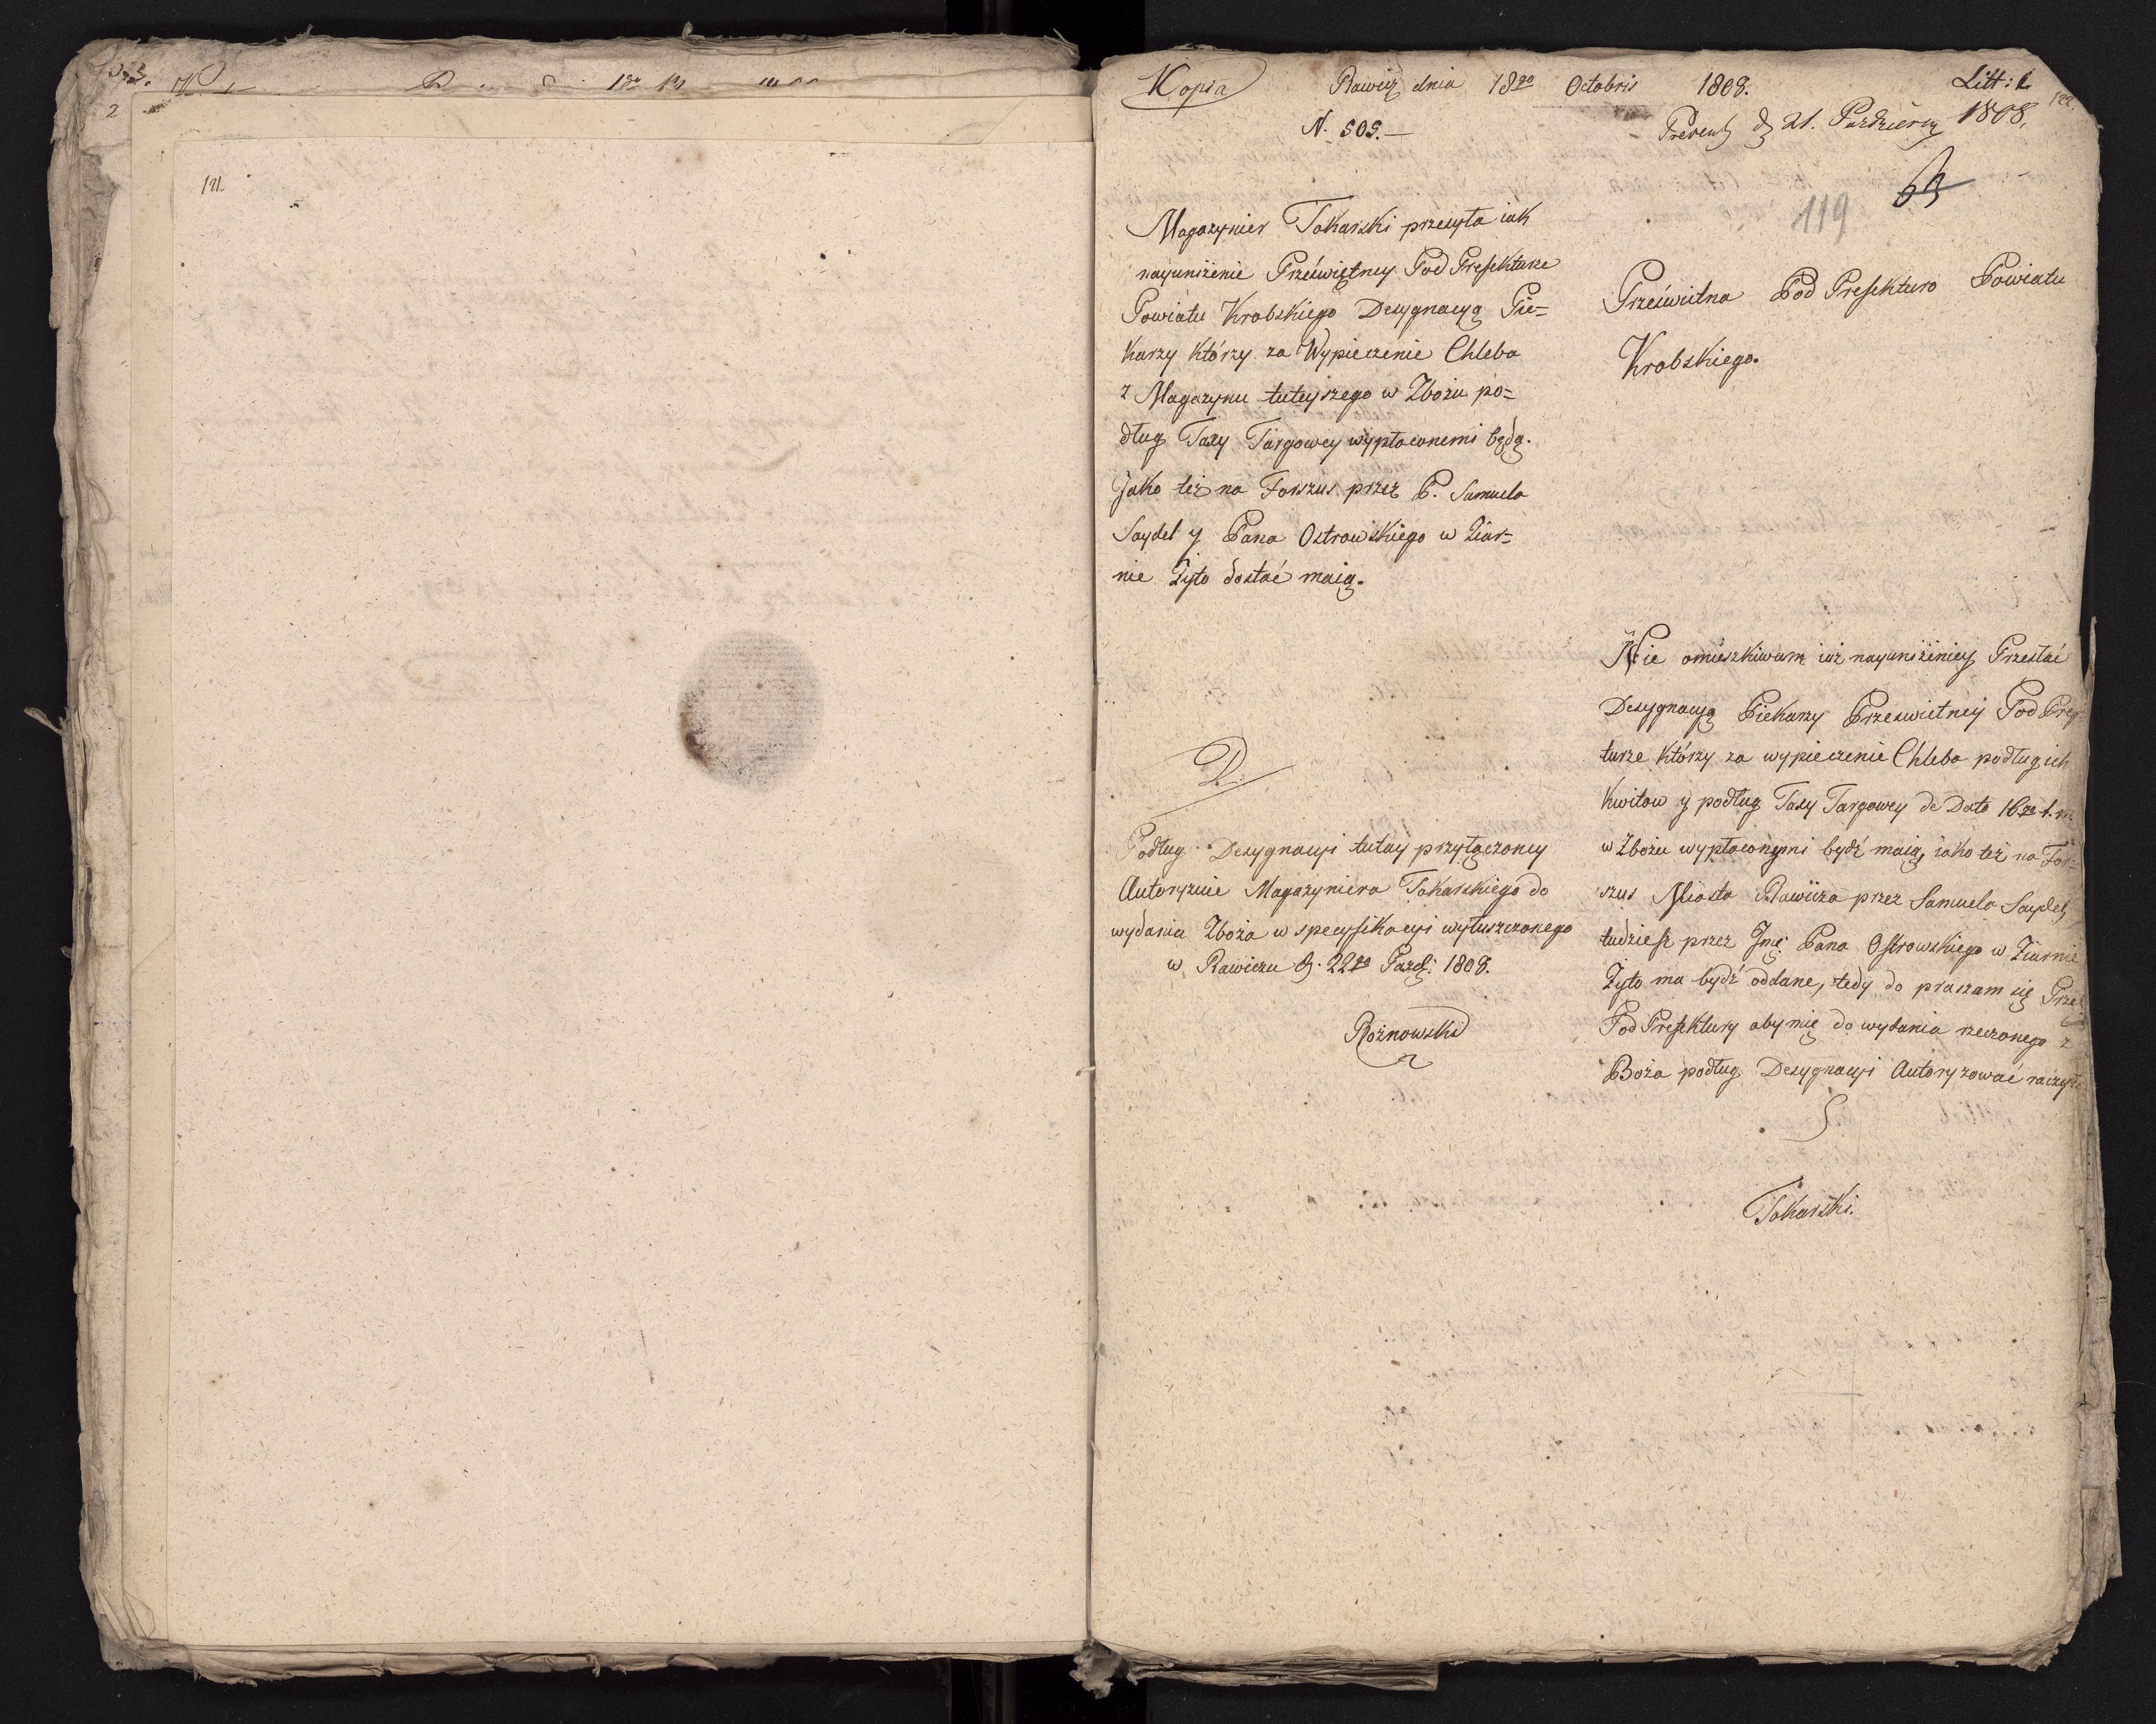 121
Kopia Rawicz dnia 18go Octobris 1808. Litt: L
122.
N. 505.—
Present d 21. Październ 1808.
119
Magazynier Tokarski przesyła iak
nayuniżenie Przeświętney Pod Prefekturze
Powiatu Krobskiego Desygnacyą Pie=
karzy którzy za Wypieczenie Chleba
z Magazynu tuteyszego w Zbożu po=
dług Taxy Targowey wypłaconemi będą.
Jako też na Forszus przez P. Samuela
Saydel y Pana Ostrowskiego w Ziar=
nie Żyto dostać maią.
D.
Podług Desygnacyi tutay przyłączoney
Autoryzuie Magazyniera Tokarskiego do
wydania Zboża w specyfikacyi wyłuszczonego
w Rawiczu d. 22go Paźd: 1808.
Rożnowski
Prześwietna Pod Prefekturo Powiatu
Krobskiego.
Nie omieszkiwam iuż nayuniżeniey Przesłać
Desygnacyą Piekarzy Prześwietney Pod Pref
turze którzy za wypieczenie Chleba podług ich
Kwitow y podług Taxy Targowey de Dato 16go t. m.
w Zbożu wypłaconymi bydź maią, iako też na For-
szus Miasta Rawicza przez Samuela Saydel,
tudziesz przez Jmć Pana Ostrowskiego w Ziarnie
Żyto ma bydź oddane, tedy do praszam się Prześ
Pod Prefektury aby mię do wydania rzeczonego z
Boża podług Desygnacyi Autoryzować raczyła
Tokarski.